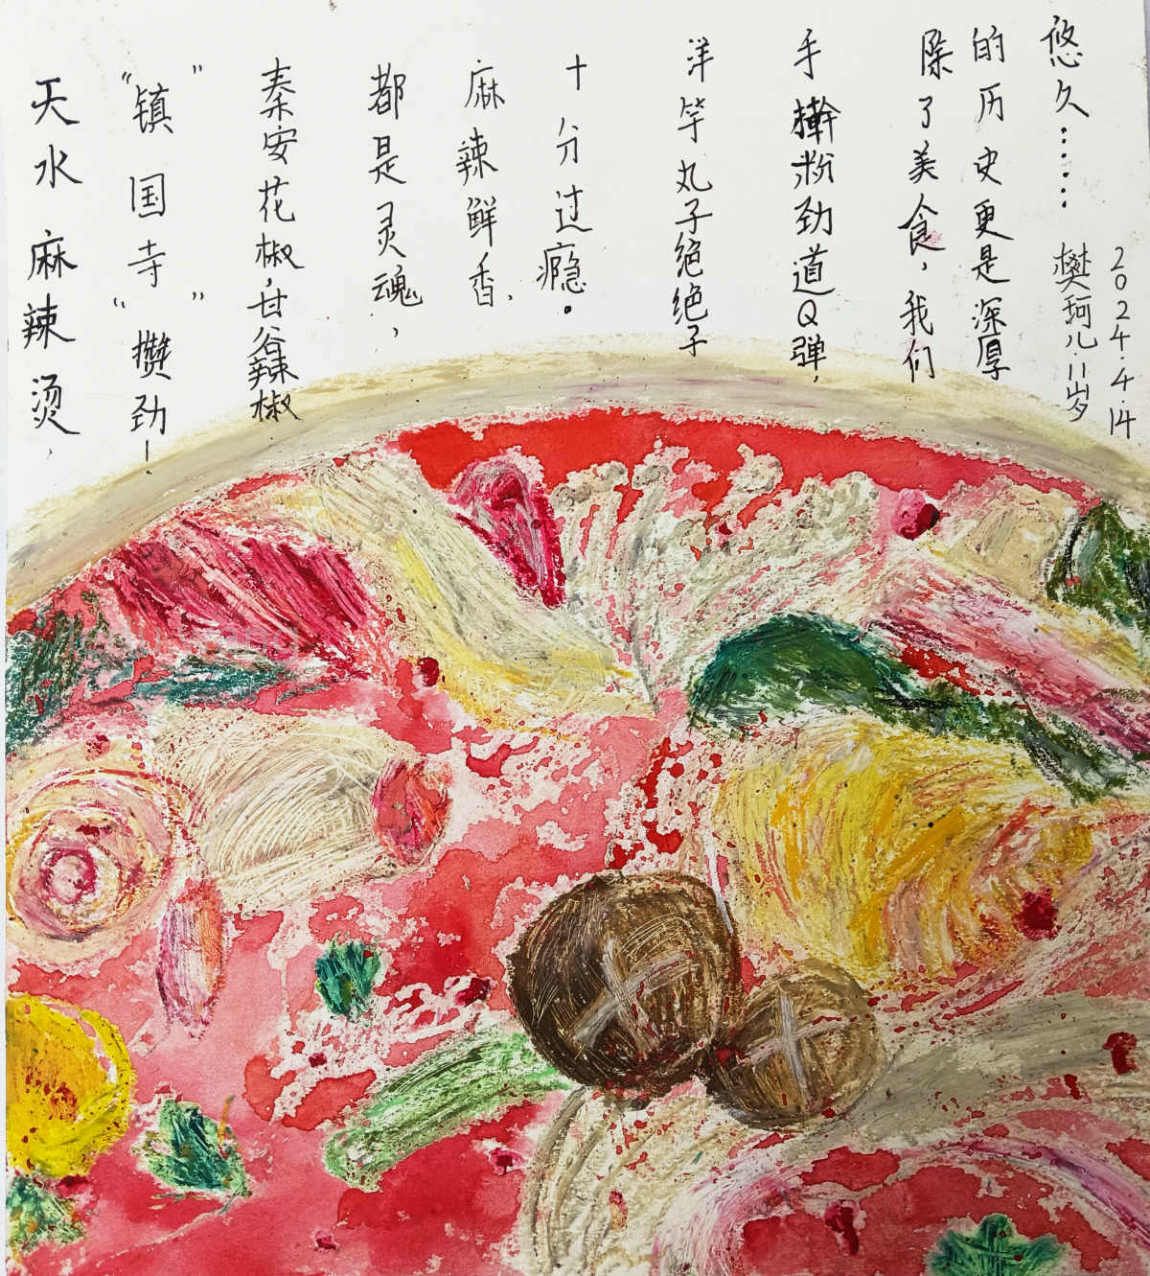 天水麻辣烫,
“镇国寺”攒劲!
秦安花椒,甘谷辣椒
都是灵魂,
麻辣鲜香,
十分过瘾。
洋竽丸子绝绝子
手擀粉劲道Q弹,
除了美食,我们
的历史更是深厚
悠久……
樊珂儿.11岁
2024.4.14